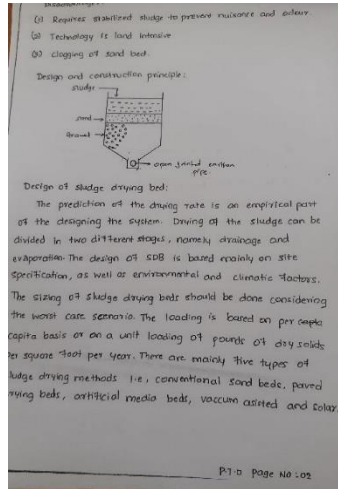 (1) Requires stabilized sludge to prevent nuisance and odour.
(2) Technology is land intensive
(3) clogging of sand bed.
Design and construction principle:
sludge
sand
Gravel
open jointed
pipe.
Design of sludge drying bed:
The prediction of the drying rate is an empirical part
of the designing the system. Drying of the sludge can be
divided in two different stages, namely drainage and
evaporation. The design of SDB is based mainly on site
specification, as well as environmental and climatic factors.
The sizing of sludge drying beds should be done considering
the worst case scenario. The loading is based on per capta
capita basis or on a unit loading of pounds of dry solids
per square foot per year. There are mainly five types of
sludge drying methods i.e, conventional sand beds, paved
rying beds, artificial media beds, vaccum assisted and solar.
P.T.O Page No: 02